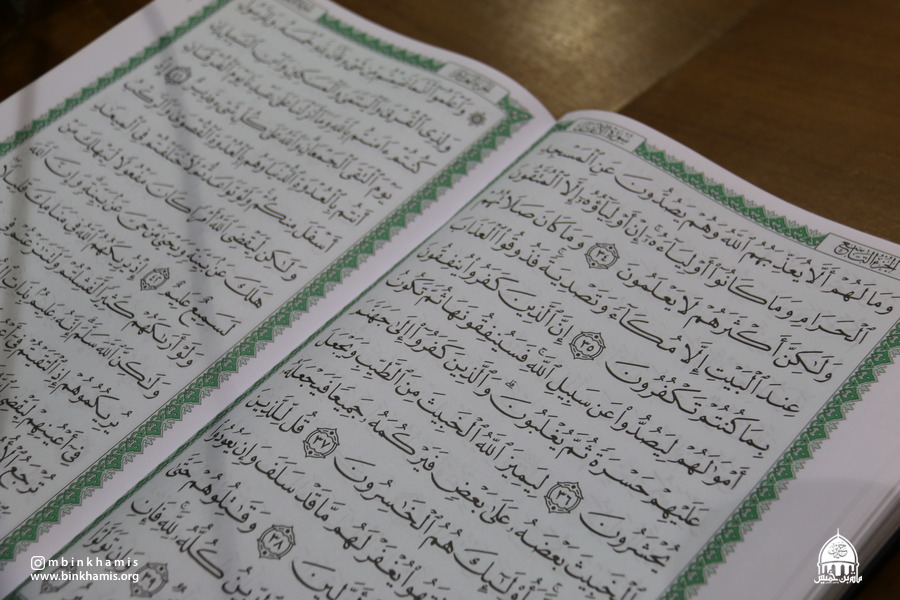 سورة الأنفال
الجزء التاسع
وَمَا لَهُمْ أَلَّا يُعَذِّبَهُمُ ٱللَّهُ وَهُمْ يَصُدُّونَ عَنِ ٱلْمَسْجِدِ
ٱلْحَرَامِ وَمَا كَانُوٓا۟ أَوْلِيَآءَهُۥٓ ۚ إِنْ أَوْلِيَآؤُهُۥٓ إِلَّا ٱلْمُتَّقُونَ
وَلَٰكِنَّ أَكْثَرَهُمْ لَا يَعْلَمُونَ ٣٤ وَمَا كَانَ صَلَاتُهُمْ
عِندَ ٱلْبَيْتِ إِلَّا مُكَآءً وَتَصْدِيَةً ۚ فَذُوقُوا۟ ٱلْعَذَابَ
بِمَا كُنتُمْ تَكْفُرُونَ ٣٥ إِنَّ ٱلَّذِينَ كَفَرُوا۟ يُنفِقُونَ
أَمْوَٰلَهُمْ لِيَصُدُّوا۟ عَن سَبِيلِ ٱللَّهِ ۚ فَسَيُنفِقُونَهَا ثُمَّ تَكُونُ
عَلَيْهِمْ حَسْرَةً ثُمَّ يُغْلَبُونَ ۗ وَٱلَّذِينَ كَفَرُوٓا۟ إِلَىٰ جَهَنَّمَ
يُحْشَرُونَ ٣٦ لِيَمِيزَ ٱللَّهُ ٱلْخَبِيثَ مِنَ ٱلطَّيِّبِ وَيَجْعَلَ
ٱلْخَبِيثَ بَعْضَهُۥ عَلَىٰ بَعْضٍ فَيَرْكُمَهُۥ جَمِيعًا فَيَجْعَلَهُۥ
أُو۟لَٰٓئِكَ هُمُ ٱلْخَٰسِرُونَ ٣٧ قُل لِّلَّذِينَ
يُغْفَرْ لَهُم مَّا قَدْ سَلَفَ وَإِن يَعُودُوا۟
٣٨ وَقَٰتِلُوهُمْ حَتَّىٰ
كُلُّهُۥ لِلَّهِ ۚ فَإِنِ
٣٩
وَٱعْلَمُوٓا۟ أَنَّمَا غَنِمْتُم مِّن شَىْءٍ فَأَنَّ لِلَّهِ خُمُسَهُۥ وَلِلرَّسُولِ
وَلِذِى ٱلْقُرْبَىٰ وَٱلْيَتَٰمَىٰ وَٱلْمَسَٰكِينِ وَٱبْنِ ٱلسَّبِيلِ إِن
كُنتُمْ ءَامَنتُم بِٱللَّهِ وَمَآ أَنزَلْنَا عَلَىٰ عَبْدِنَا يَوْمَ ٱلْفُرْقَانِ
يَوْمَ ٱلْتَقَى ٱلْجَمْعَانِ ۗ وَٱللَّهُ عَلَىٰ كُلِّ شَىْءٍ قَدِيرٌ ٤١ إِذْ
أَنتُم بِٱلْعُدْوَةِ ٱلدُّنْيَا وَهُم بِٱلْعُدْوَةِ ٱلْقُصْوَىٰ وَٱلرَّكْبُ
أَسْفَلَ مِنكُمْ ۚ وَلَوْ تَوَاعَدتُّمْ لَٱخْتَلَفْتُمْ فِى ٱلْمِيعَٰدِ ۙ
وَلَٰكِن لِّيَقْضِىَ ٱللَّهُ أَمْرًا كَانَ مَفْعُولًا لِّيَهْلِكَ مَنْ
هَلَكَ عَنۢ بَيِّنَةٍ وَيَحْيَىٰ مَنْ حَىَّ عَنۢ بَيِّنَةٍ ۗ وَإِنَّ ٱللَّهَ
لَسَمِيعٌ عَلِيمٌ ٤٢ إِذْ يُرِيكَهُمُ ٱللَّهُ فِى مَنَامِكَ قَلِيلًا
وَلَوْ أَرَىٰكَهُمْ كَثِيرًا لَّفَشِلْتُمْ
وَلَٰكِنَّ ٱللَّهَ سَلَّمَ ۗ إِنَّهُۥ عَلِيمٌۢ
يُرِيكُمُوهُمْ إِذِ ٱلْتَقَيْتُمْ فِىٓ
فِىٓ أَعْيُنِهِمْ لِيَقْضِىَ
تُرْجَعُ ٱلْأُ
mbinkhamis
www.binkhamis.org